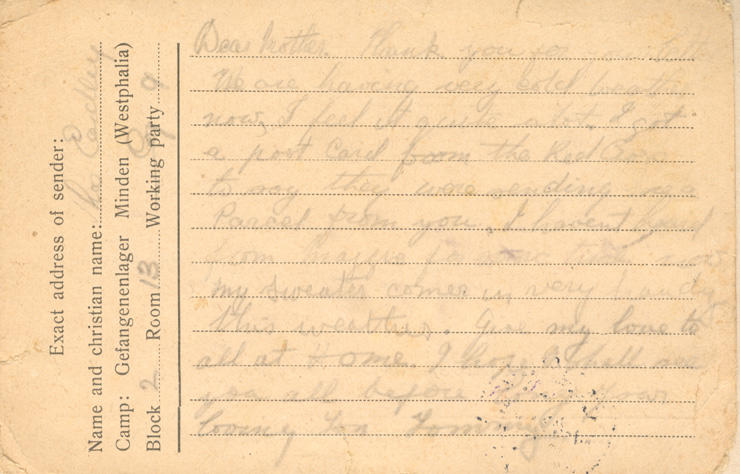 Exact address of sender:
Name and christian name:
Camp: Gefangenenlager Minden (Westphalia)
Block 2 Room 13 Working party 9
Dear Mother. Thank you for your
We are having very cold weather
now, I feel it quite a lot. I got
a post card from the Red Cross
to say they were sending me a
Parcel from you. I havent heard
from Maggie for some time now
my sweater comes in very handy
this weather. Give my love to
all at Home. I hope I shall see
you all before long Your
loving Son Tommy